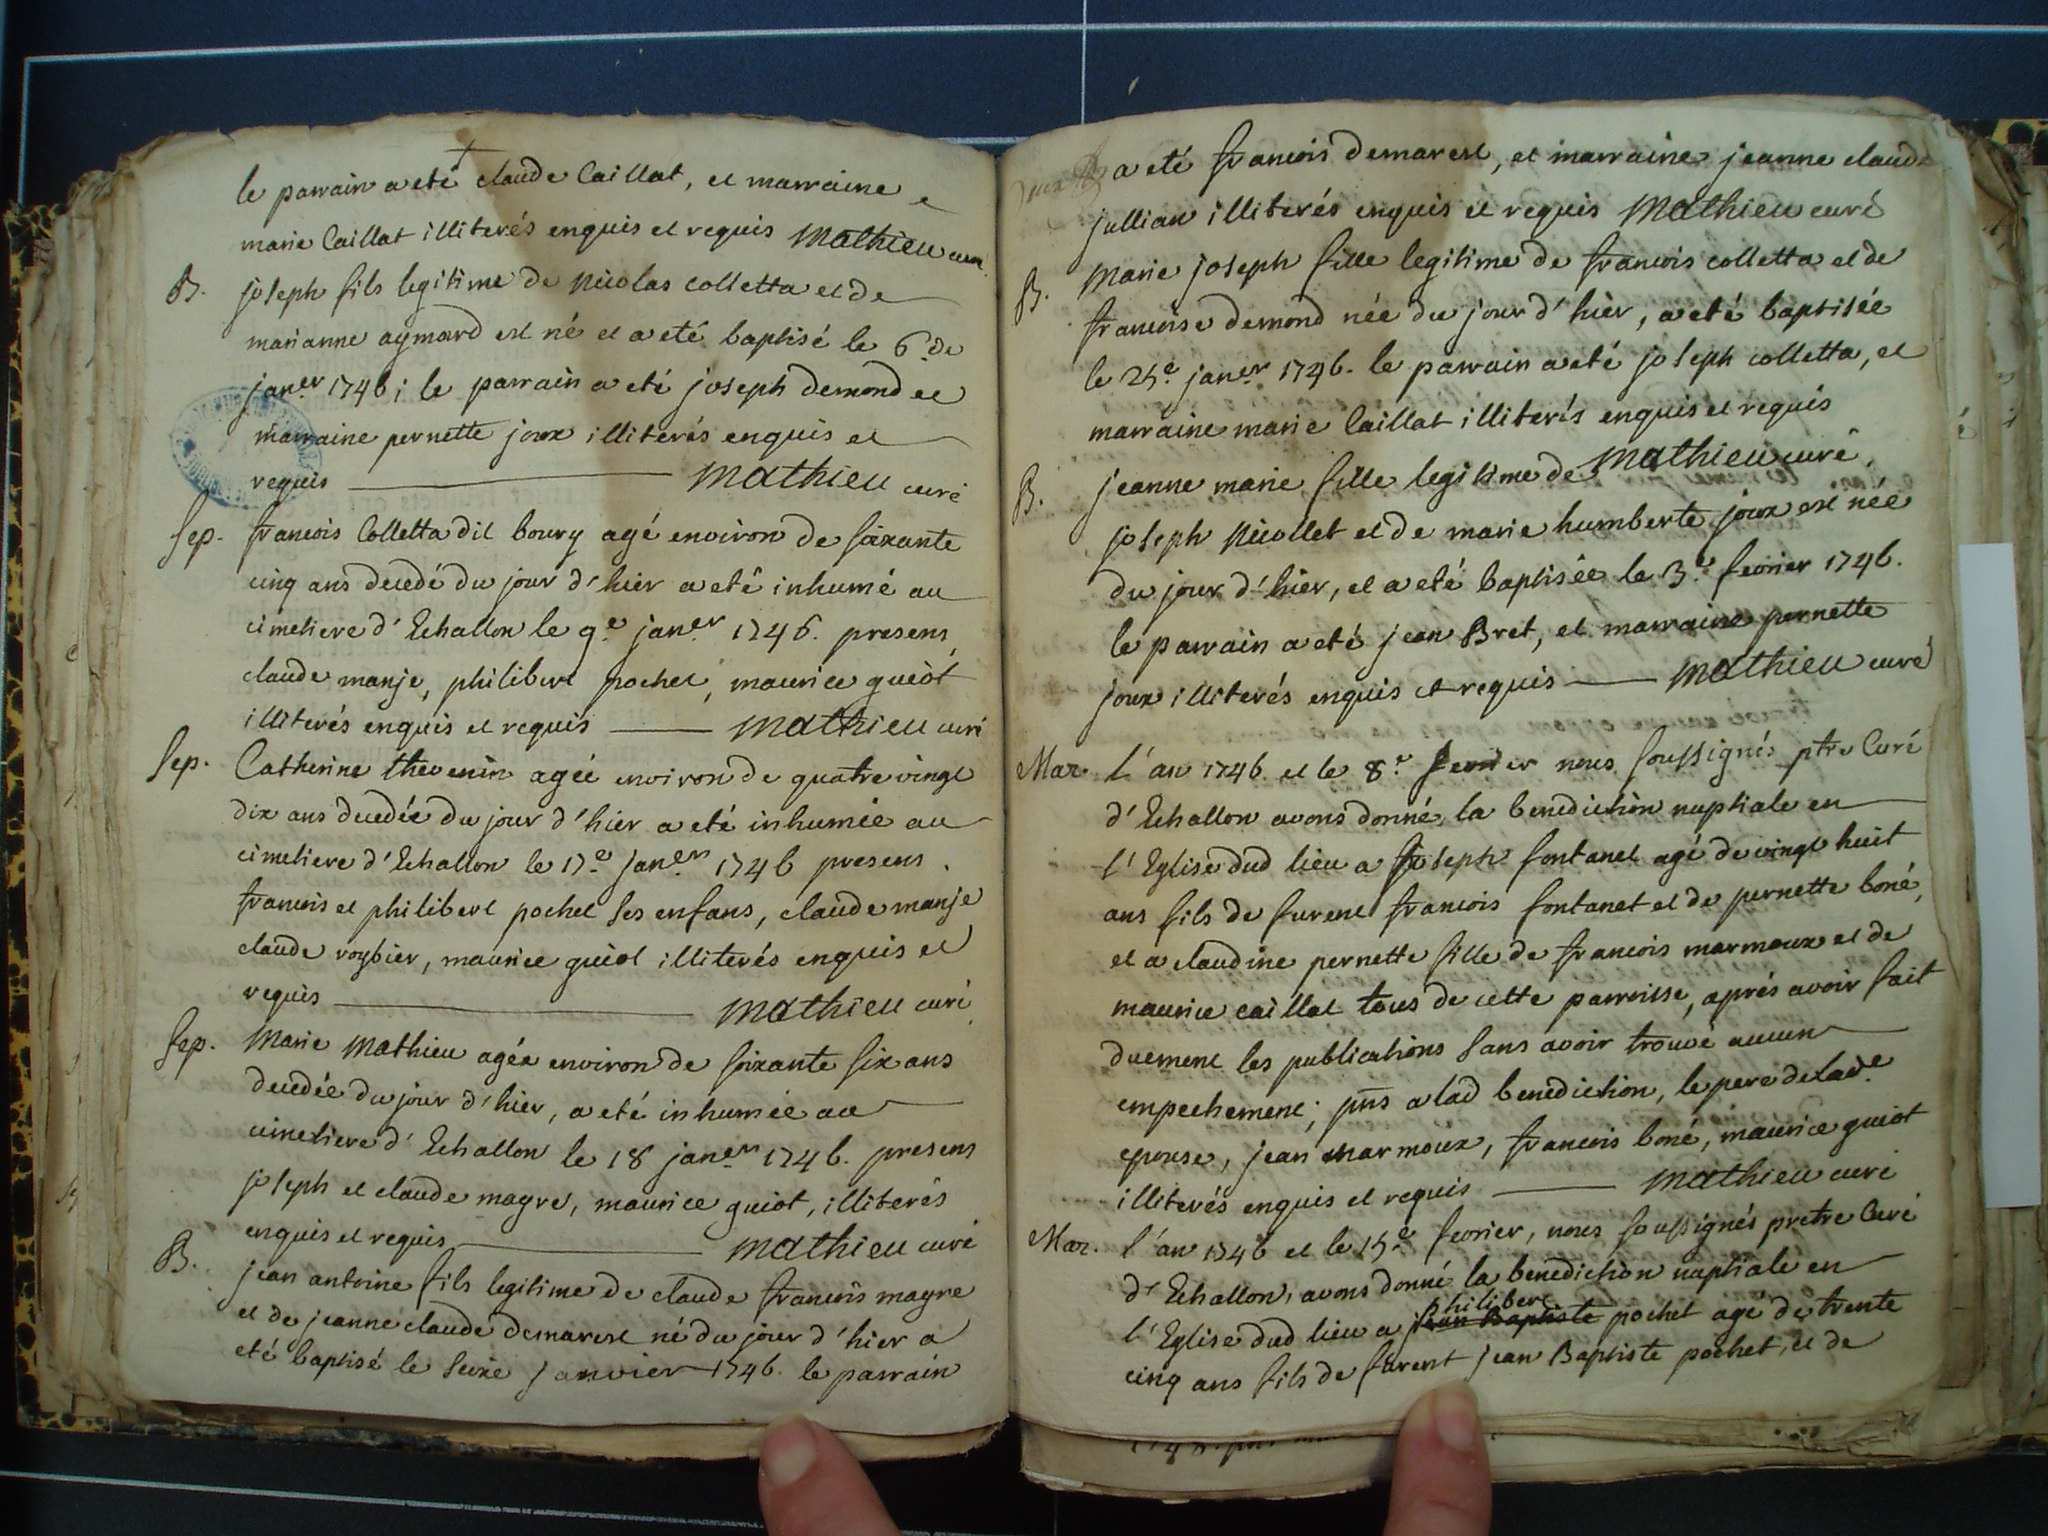 le parrain a eté claude Caillat, et marraine
marie Caillat illiterés enquis et requis Mathieu curé
B. joseph fils legitime de Nicolas colletta et de
marianne aymard est né et a eté baptisé le 6e de
janer 1746; le parrain a eté joseph demond et
marraine pernette joux illiterés enquis et
requis Mathieu curé
Sep. francois Colletta dit boury agé environ de soixante
cinq ans decedé du jour d'hier a eté inhumé au
cimetiere d'Echallon le 9e janer 1746. presens,
claude manje, philibert pochet, maurice guiot
illiterés enquis et requis Mathieu curé
Sep. Catherine thevenin agée environ de quatre vingt
dix ans decedée du jour d'hier a eté inhumée au
cimetiere d'Echallon le 17e janer 1746 presens
francois et philibert pochet ses enfans, claude manje
claude roybier, maurice guiot illiterés enquis et
requis Mathieu curé
Sep. Marie Mathieu agée environ de soixante six ans
decedée du jour d'hier, a eté inhumée au
cimetiere d'Echallon le 18 janer 1746. presens
joseph et claude magre, maurice guiot, illiterés
enquis et requis Mathieu curé
B. jean antoine fils legitime de claude francois magre
et de jeanne claude demarest né du jour d'hier a
eté baptisé le seize janvier 1746. le parrain
a eté francois demarest, et marraine jeanne claude
jullian illiterés enquis et requis Mathieu curé
B. Marie joseph fille legitime de francois colletta et de
francoise demond née du jour d'hier, a eté baptisée
le 25e janer 1746. le parrain a eté joseph colletta, et
marraine marie Caillat illiterés enquis et requis
Mathieu curé,
B. jeanne marie fille legitime de
joseph Nicollet et de marie humberte joux est née
du jour d'hier, et a eté baptisée le 3e fevrier 1746.
le parrain a eté jean Bret, et marraine pernette
joux illiterés enquis et requis Mathieu curé
Mar. L'an 1746 et le 8e fevrier nous soussignés ptre Curé
d'Echallon avons donné la benediction nuptiale en
l'Eglise dud lieu a joseph fontanet agé de vingt huit
ans fils de furent francois fontanet et de pernette boné,
et a claudine pernette fille de francois marmoux et de
maurice caillat tous de cette parroisse, aprés avoir fait
duement les publications sans avoir trouvé aucun
empechement; pns a lad benediction, le pere de lade
epouse, jean marmoux, francois boné, maurice guiot
illiterés enquis et requis Mathieu curé
Mar. l'an 1746 et le 15e fevrier, nous soussignés pretre Curé
d'Echallon, avons donné la benediction nuptiale en
philibert
l'Eglise dud lieu a jean Baptiste pochet agé de trente
cinq ans fils de furent jean Baptiste pochet, et de